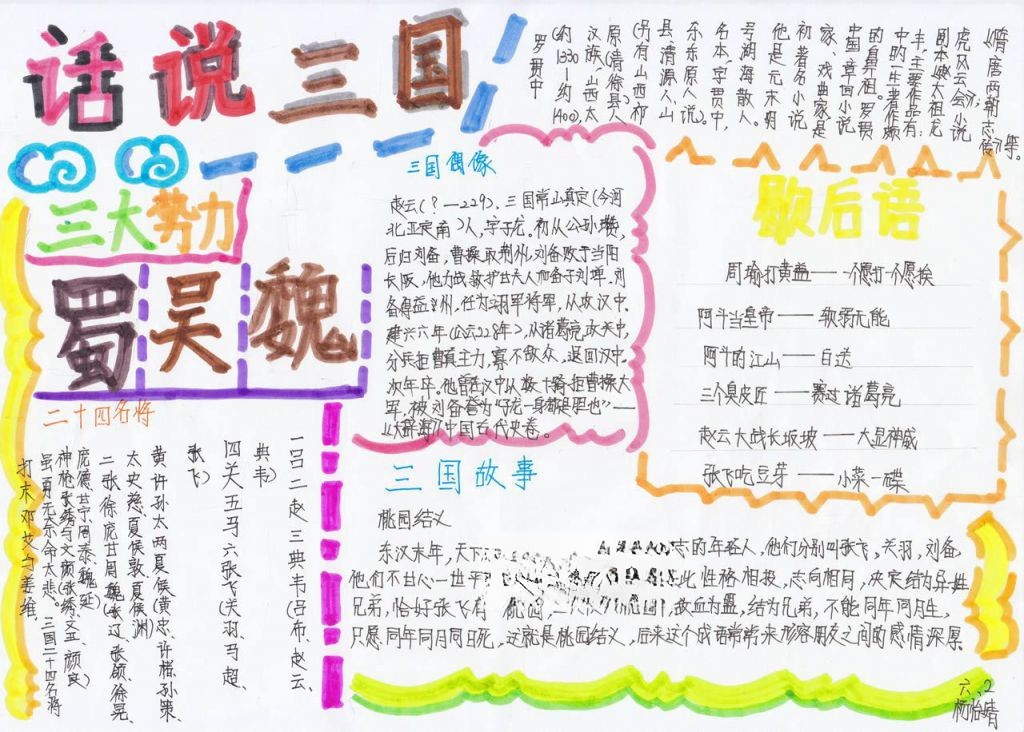 话说三国
罗贯中
(约1330—约1400),太
汉族,山西太
原(清徐县)人
(另有山西祁
县,清源人,山
东东原人说)。
名本,字贯中,
号湖海散人。
他是元末明
初著名小说
家、戏曲家是
中国章回小说
的鼻祖。罗贯
中的一生著作颇
丰,主要作品有:
剧本《赵太祖龙
虎风云会》;小说
《隋唐两朝志传》等。
三大势力
蜀 吴 魏
三国偶像
赵云(?—229),三国常山真定(今河
北正定南)人,字子龙。初从公孙瓒,
后归刘备,曹操取荆州,刘备败于当阳
长阪,他力战救护甘夫人和备子刘禅。刘
备得益州,任为翊军将军,从攻汉中。
建兴六年(公元228年),从诸葛亮攻关中,
分兵拒曹真主力,寡不敌众,退回汉中。
次年卒。他曾在汉中以数十骑拒曹操大
军,被刘备誉为“子龙一身都是胆也”——
《辞海》中国古代史卷。
歇后语
周瑜打黄盖——一个愿打一个愿挨
阿斗当皇帝——软弱无能
阿斗的江山——白送
三个臭皮匠——赛过诸葛亮
赵云大战长坂坡——大显神威
张飞吃豆芽——小菜一碟
二十四名将
一吕二赵三典韦(吕布、赵云、
典韦)
四关五马六张飞(关羽、马超、
张飞)
黄许孙太两夏侯(黄忠、许褚、孙策、
太史慈、夏侯敦、夏侯渊)
二张徐庞甘周魏(张辽、张颌、徐晃、
庞德、甘宁、周泰、魏延)
神枪张绣与文颜(张绣、文丑、颜良)
虽勇无奈命太悲。三国二十四名将
打末邓艾与姜维
三国故事
桃园结义
东汉末年,天下志的年轻人,他们分别叫张飞,关羽,刘备,
他们不甘心一世平此性格相投,志向相同,决定结为异姓
兄弟,恰好张飞有一桃园,歃血为盟,结为兄弟,不能同年同月生,
只愿同年同月同日死,这就是桃园结义,后来这个成语常常来形容朋友之间的感情深厚.
六、2
柯怡晴